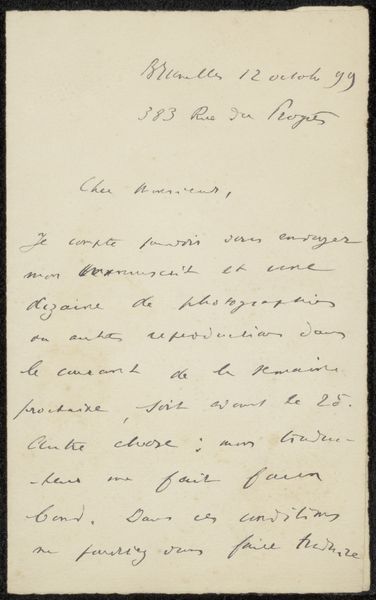 Bruxelles 12 octob 99
383 Rue du Progrès
Cher Monsieur,
Je compte pouvoir vous envoyer
mon manuscrit et une
dizaine de photographies
ou autres reproductions dans
le courant de la semaine
prochaine, soit avant le 25.
Autre chose : mon traduc-
-teur me fait faux
bond. Dans ces conditions
ne pourriez vous faire traduire